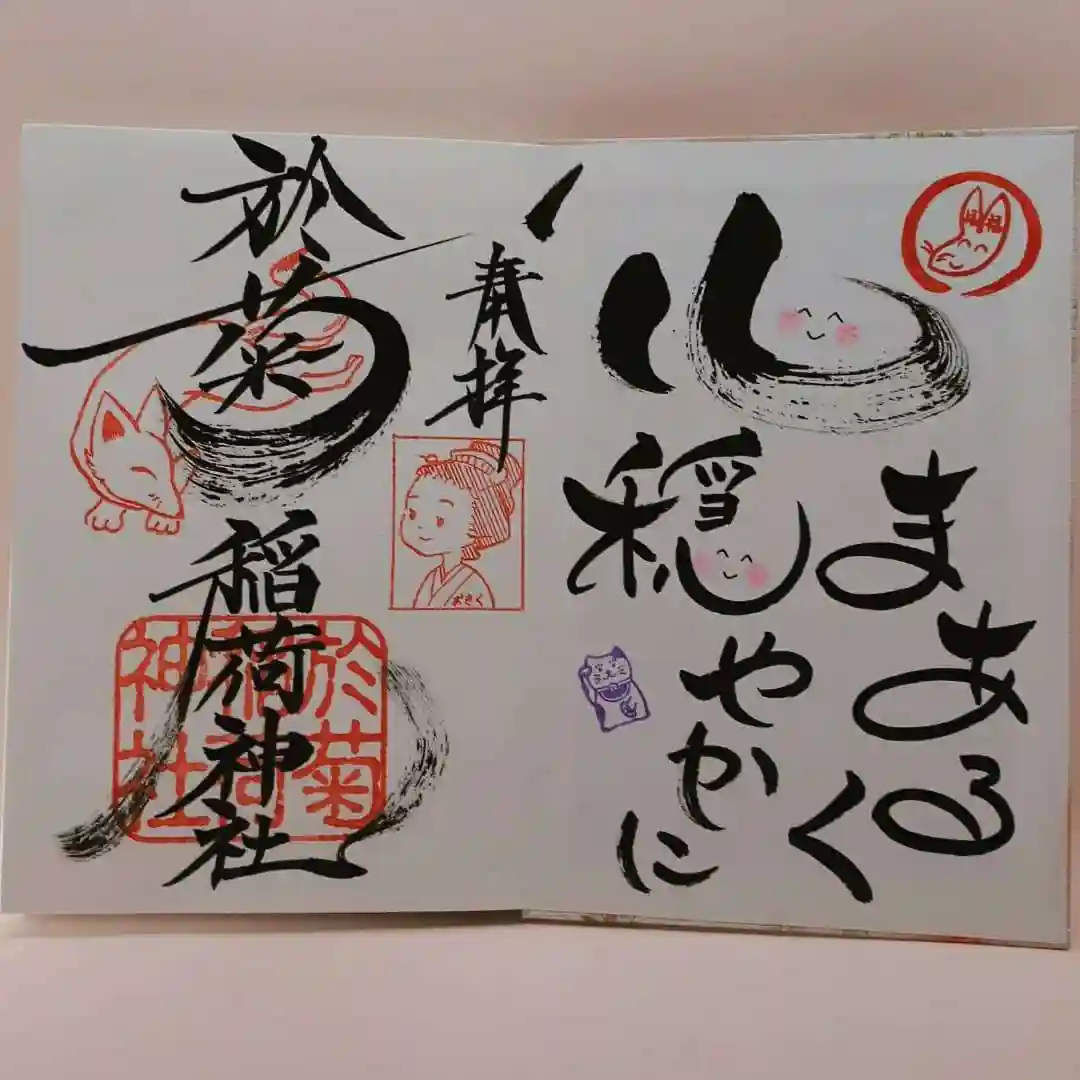 心
まあるく
穏やかに
奉拝
おきく
於菊稲荷神社
於菊
稲荷
神社